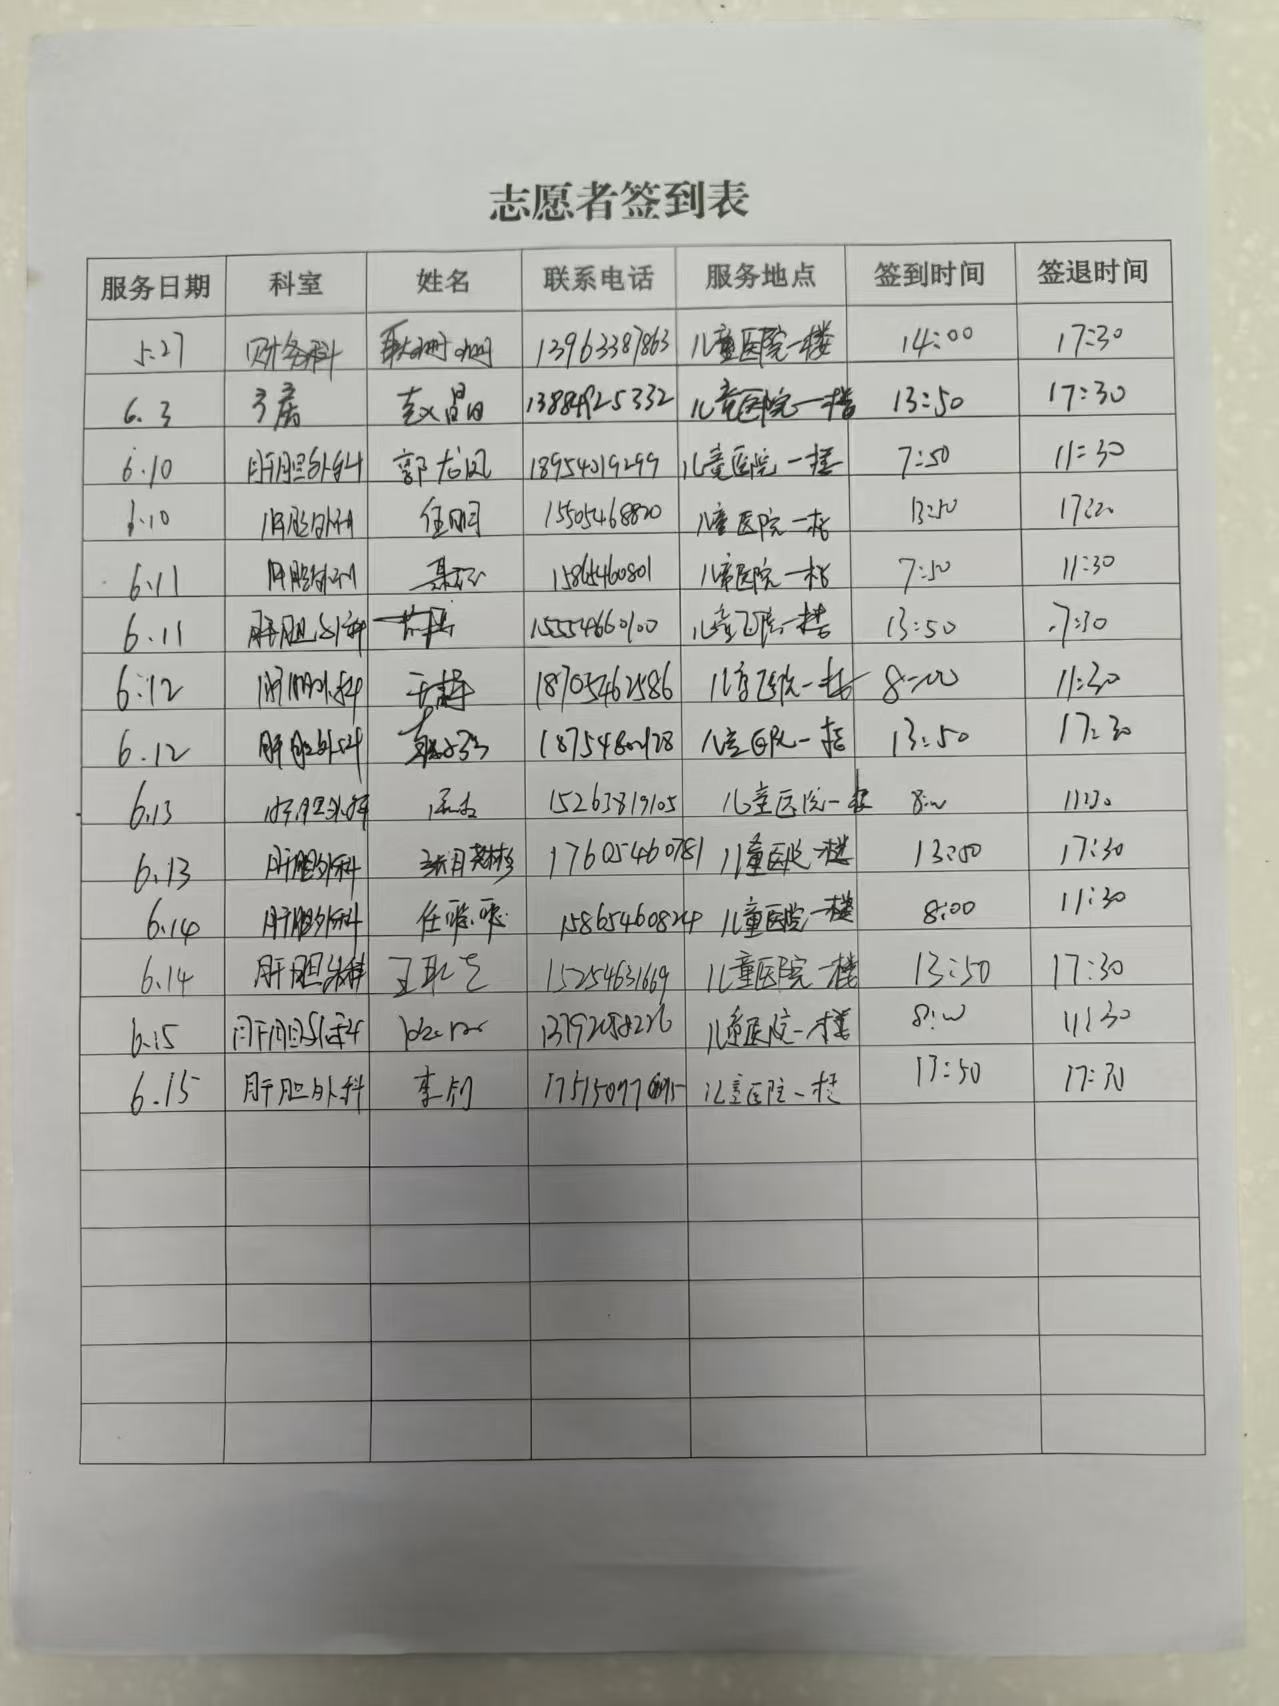 志愿者签到表
服务日期 科室 姓名 联系电话 服务地点 签到时间 签退时间
5.27 财务科 13963387863 儿童医院一楼 14:00 17:30
6.3 赵昌田 13884925332 儿童医院一楼 13:50 17:30
6.10 肝胆外科 郭龙凤 18954019299 儿童医院一楼 7:50 11:30
6.10 肝胆外科 任明 15505468820 儿童医院一楼 13:50 17:20
6.11 肝胆外科 15865460801 儿童医院一楼 7:50 11:30
6.11 肝胆外科 15554660100 儿童医院一楼 13:50 17:30
6.12 肝胆外科 18705462586 儿童医院一楼 8:00 11:30
6.12 肝胆外科 儿童医院一楼 13:50 17:30
6.13 肝胆外科 15263819105 儿童医院一楼 8:00 11:30
6.13 肝胆外科 17605460781 儿童医院一楼 13:50 17:30
6.14 肝胆外科 任 15865460824 儿童医院一楼 8:00 11:30
6.14 肝胆外科 王 15254631669 儿童医院一楼 13:50 17:30
6.15 肝胆外科 儿童医院一楼 8:00 11:30
6.15 肝胆外科 李 儿童医院一楼 13:50 17:30